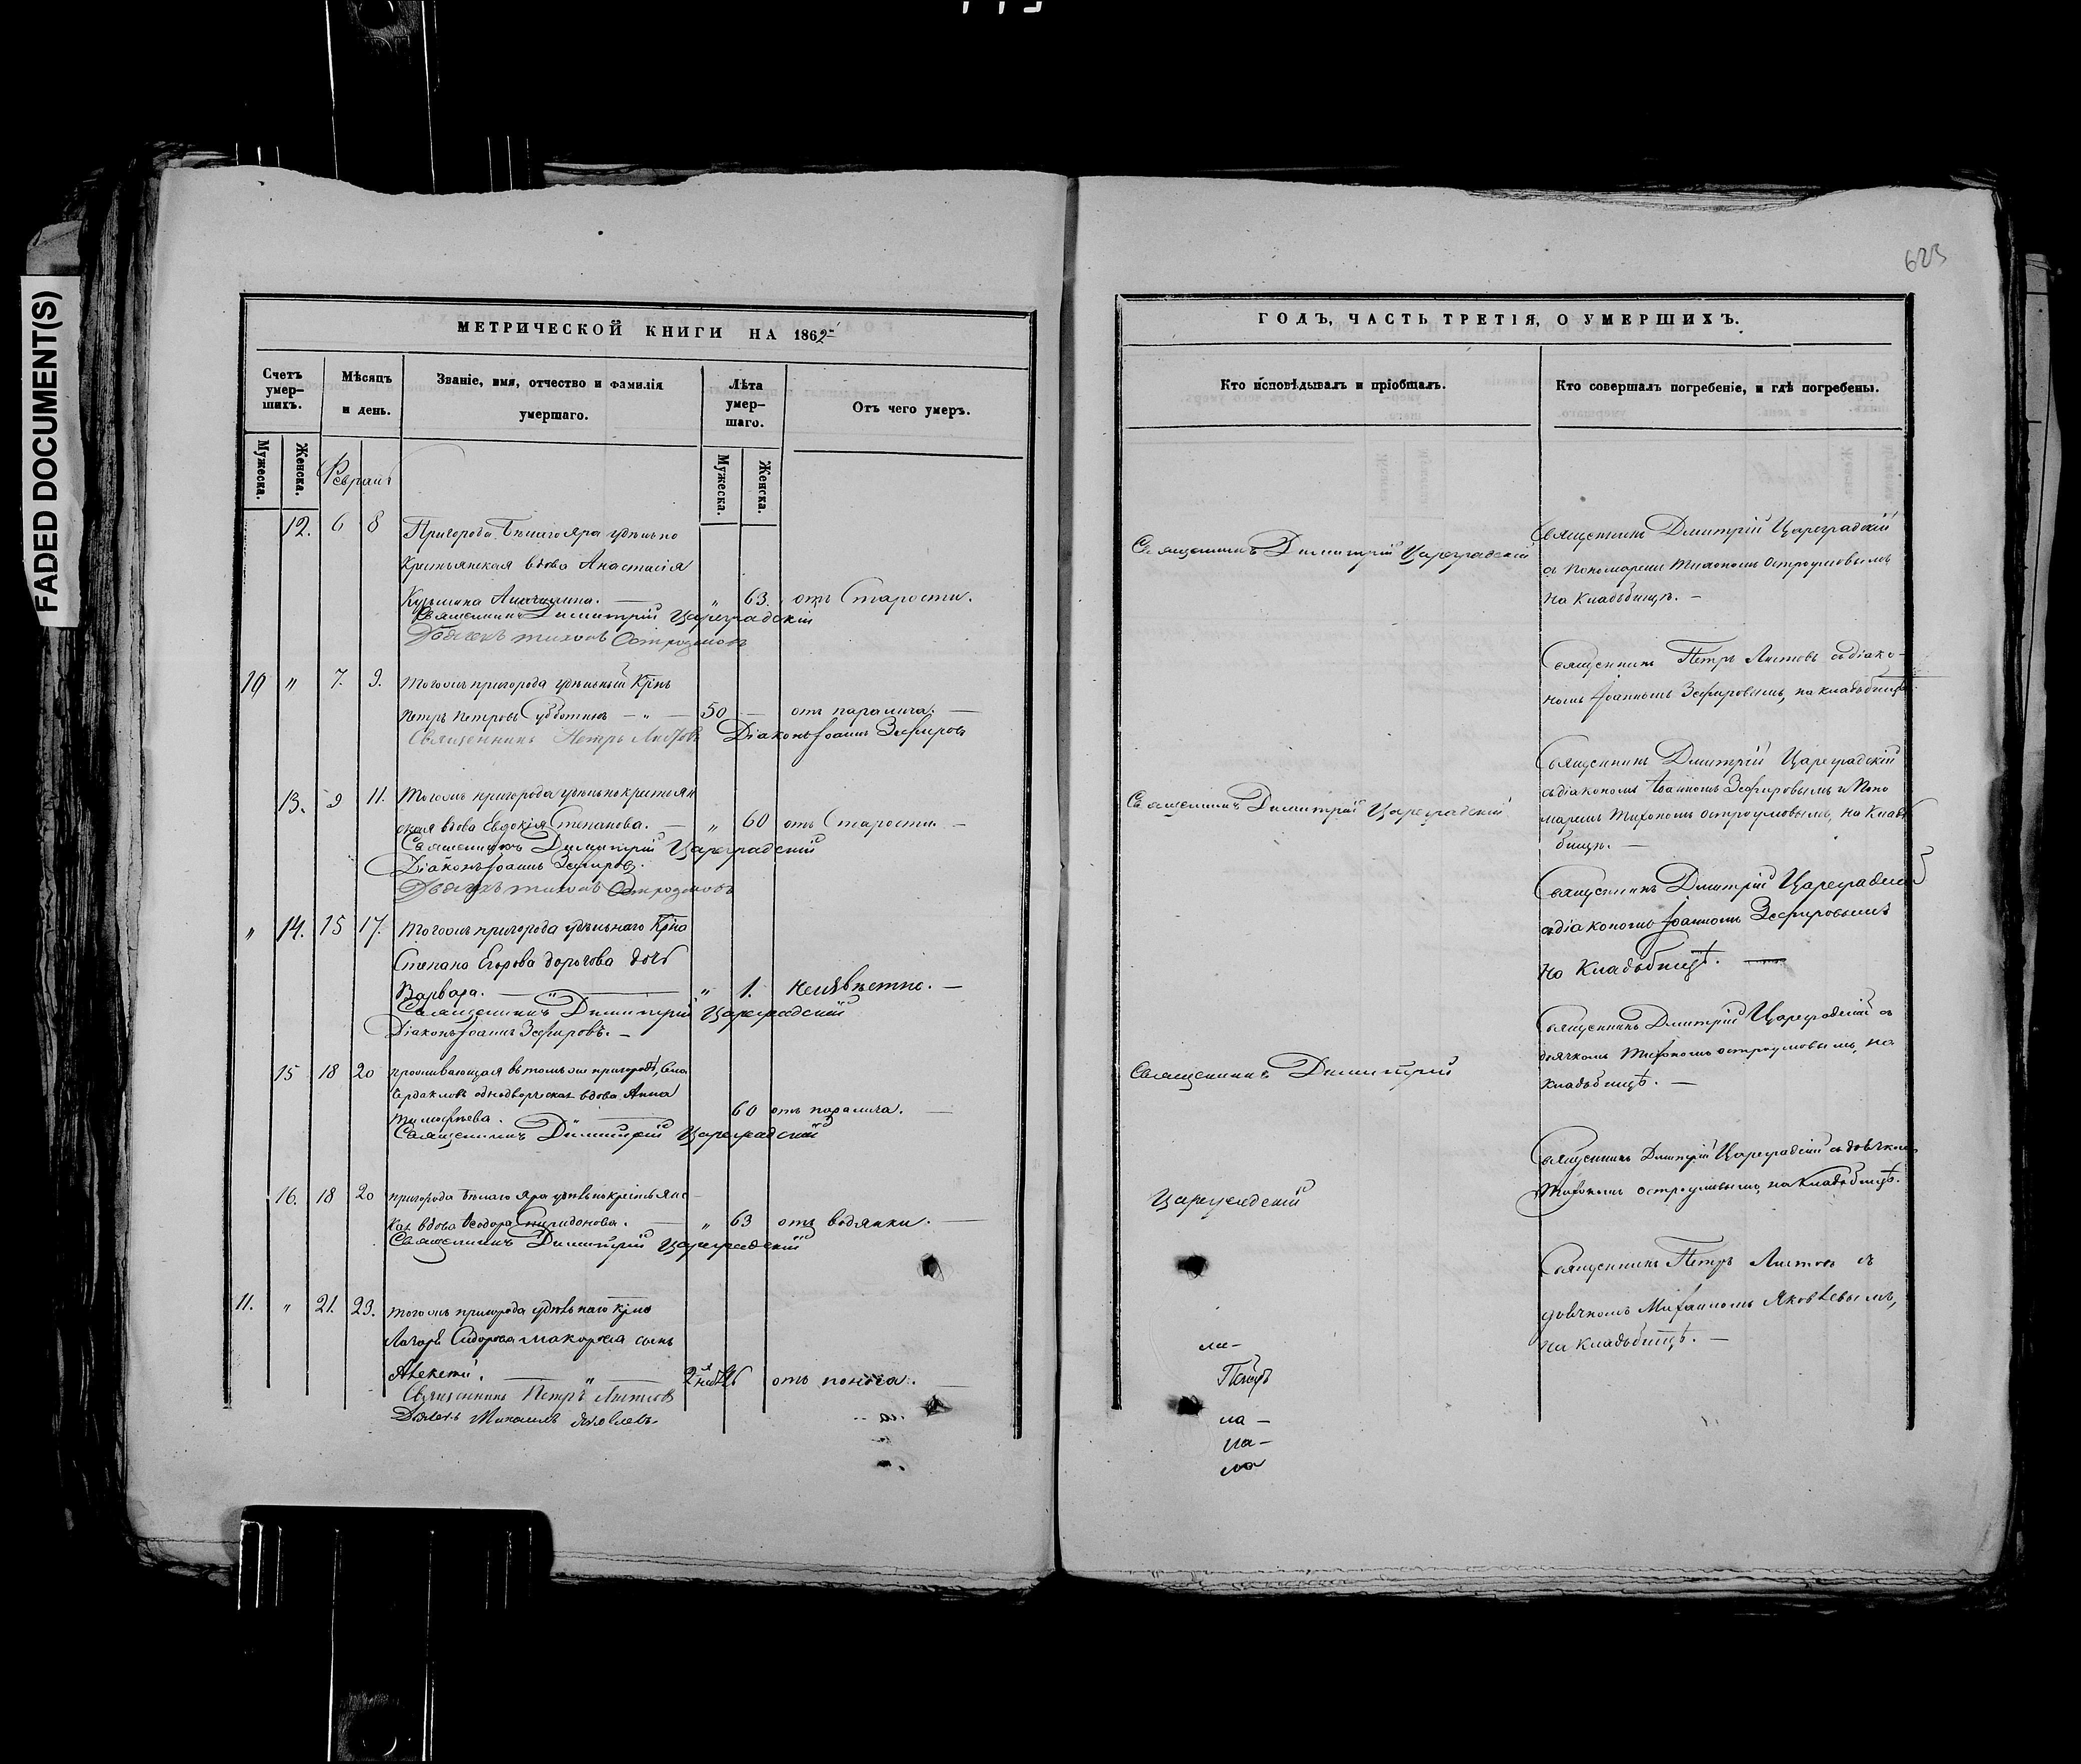 FADED DOCUMENT(S)
623
МЕТРИЧЕСКОЙ КНИГИ НА 1862
Счетъ умер-шихъ.
Мѣсяцъ и день.
Званіе, имя, отчество и фамилія умершаго.
Лѣта умер-шаго.
Отъ чего умеръ.
Мужеска.
Женска.
Февраль
Мужеска.
Женска.
12. 6 8 Пригорода Бѣлаго яра удѣльно
крестьянская вдова Анастасія
Кузьмина „ 63. отъ Старости.
Священникъ Димитрій Цареградскій
Дьячекъ Тихонъ Остроумовъ
10 „ 7. 9. Тогожъ пригорода удѣльный Кр̃нъ
Петръ Петровъ Субботинъ — „ — 50 — отъ паралича. —
Священникъ Петръ Листовъ Діаконъ Іоаннъ Зефировъ
13. 9 11. Тогожъ пригорода удѣльнокрестьян
ская вдова Евдокія Степанова. — „ 60 отъ Старости. —
Священникъ Димитрій Цареградскій
Діаконъ Іоаннъ Зефировъ.
Дьячекъ Тихонъ Остроумовъ
„ 14. 15 17. Тогожъ пригорода удѣльнаго Кр̃на
Степана Егорова Дорогова дочь
Варвара. — „ — „ 1. неизвѣстно. —
Священникъ Димитрій Цареградскій
Діаконъ Іоаннъ Зефировъ. —
15 18 20 проживающая въ томъ же пригородѣ, Села
Чердаковъ однодворческая вдова Анна
Тимофѣева. 60 отъ паралича. —
Священникъ Димитрій Цареградскій
16. 18 20 пригорода Бѣлаго яра удѣльнокрестьянс-
кая вдова Ѳеодора Спиридонова. — „ 63 отъ водянки. —
Священникъ Димитрій Цареградскій
11. „ 21. 23. тогожъ пригорода удѣльнаго кр̃на
Лазаря Сидорова Макарова сынъ
Алексѣй. — „ — 2 отъ поноса. —
Священникъ Петръ Листовъ
Дьячекъ Михаилъ Яковлевъ.
ГОДЪ, ЧАСТЬ ТРЕТІЯ, О УМЕРШИХЪ.
Кто исповѣдывалъ и пріобщалъ.
Кто совершалъ погребеніе, и гдѣ погребены.
Священникъ Димитрій Цареградскій
Священникъ Дмитрій Цареградскій
съ Пономаремъ Тихономъ Остроумовымъ
на Кладбищѣ. —
Священникъ Петръ Листовъ съ діако-
номъ Іоанномъ Зефировымъ, на кладбищѣ.
Священникъ Димитрій Цареградскій
Священникъ Дмитрій Цареградскій
съ діакономъ Іоанномъ Зефировымъ и Поно
маремъ Тихономъ Остроумовымъ, на Клад
бищѣ. —
Священникъ Дмитрій Цареградскій
съ діакономъ Іоанномъ Зефировымъ
на Кладбищѣ. —
Священникъ Димитрій
Священникъ Дмитрій Цареградскій съ
дьячкомъ Тихономъ Остроумовымъ, на
кладбищѣ. —
Цареградскій
Священникъ Дмитрій Цареградскій съ дьячком
Тихономъ Остроумовымъ, на кладбищѣ.
Священникъ Петръ Листовъ съ
дьячкомъ Михаиломъ Яковлевымъ,
на кладбищѣ. —
Петръ
ла —